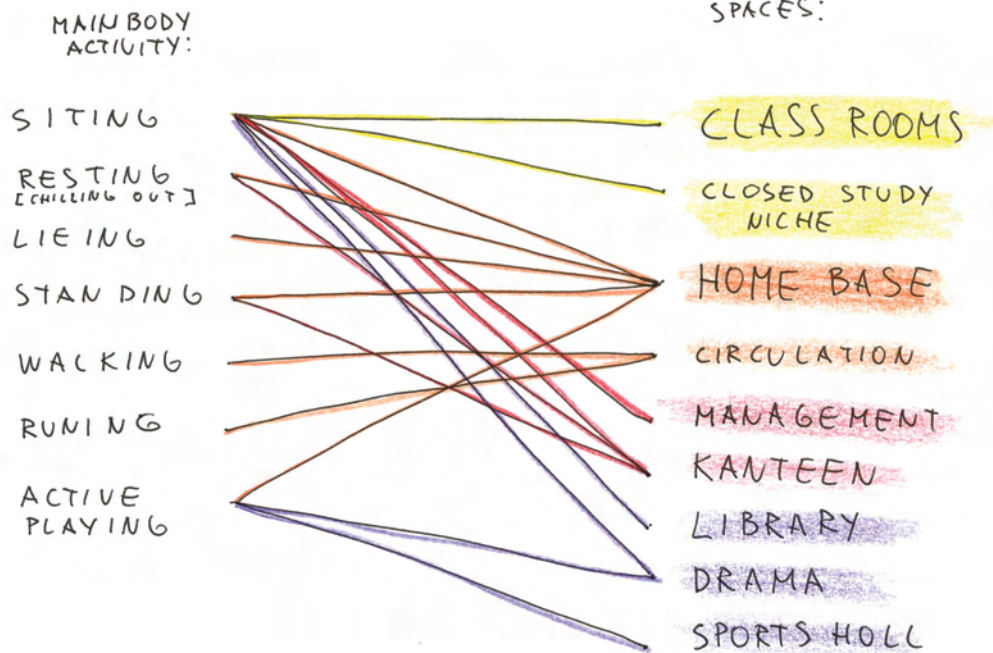 MAIN BODY
ACTIVITY:
SITING
RESTING
[CHILLING OUT]
LIEING
STANDING
WACKING
RUNING
ACTIVE
PLAYING
SPACES:
CLASS ROOMS
CLOSED STUDY
NICHE
HOME BASE
CIRCULATION
MANAGEMENT
KANTEEN
LIBRARY
DRAMA
SPORTS HOLL